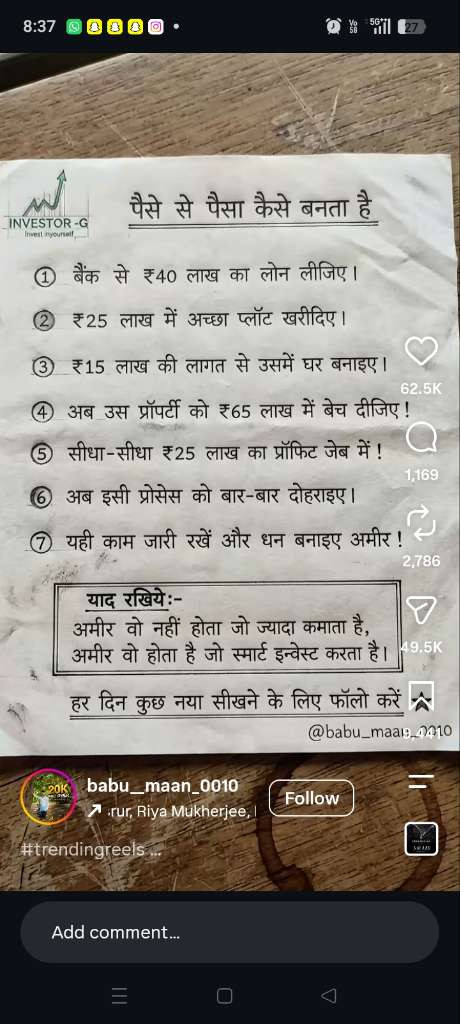 8:37
Vo
5G
5G
27
INVESTOR -G
Invest inyourself
पैसे से पैसा कैसे बनता है
① बैंक से ₹40 लाख का लोन लीजिए।
② ₹25 लाख में अच्छा प्लॉट खरीदिए।
③ ₹15 लाख की लागत से उसमें घर बनाइए।
④ अब उस प्रॉपर्टी को ₹65 लाख में बेच दीजिए!
⑤ सीधा-सीधा ₹25 लाख का प्रॉफिट जेब में!
⑥ अब इसी प्रोसेस को बार-बार दोहराइए।
⑦ यही काम जारी रखें और धन बनाइए अमीर!
याद रखिये:-
अमीर वो नहीं होता जो ज्यादा कमाता है,
अमीर वो होता है जो स्मार्ट इन्वेस्ट करता है।
हर दिन कुछ नया सीखने के लिए फॉलो करें
@babu_maan_0010
62.5K
1,169
2,786
49.5K
babu__maan_0010
Follow
rur, Riya Mukherjee,
#trendingreels ...
Add comment...